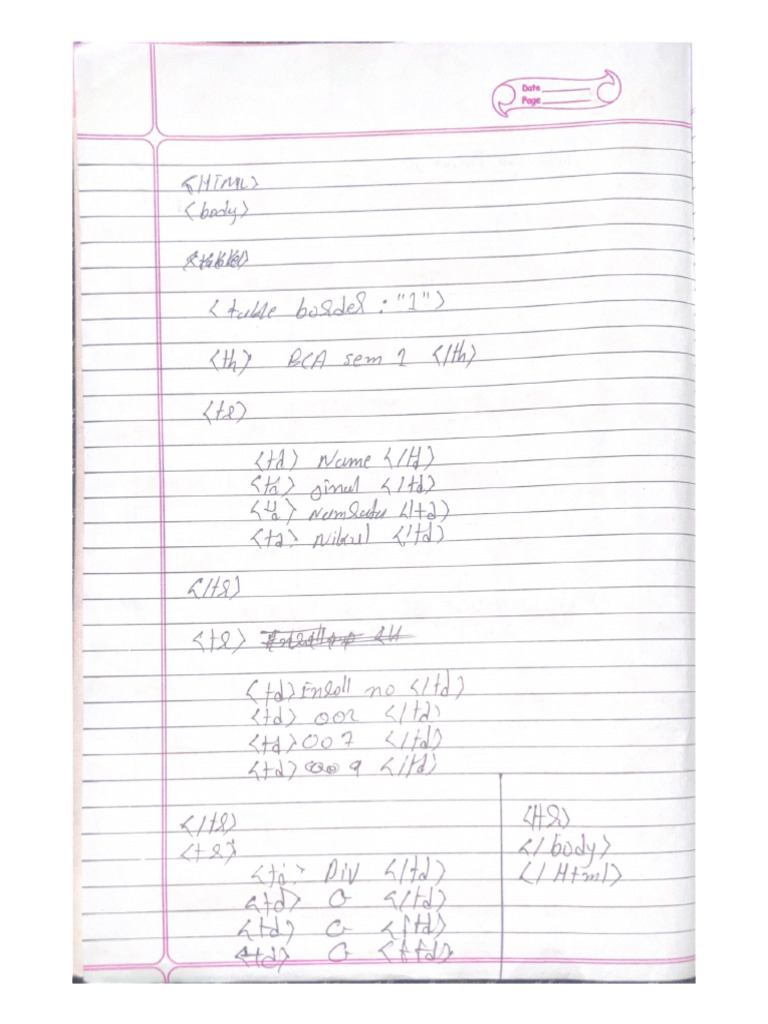 Date
Page
<HTML>
<body>
<table border : "1">
<th> BCA sem 1 </th>
<tr>
<td> Name </td>
<td> ginal </td>
<td> </td>
<td> Nikul </td>
</tr>
<tr>
<td> Enroll no </td>
<td> 002 </td>
<td> 007 </td>
<td> 009 </td>
</tr>
<tr>
<td> Div </td>
<td> G </td>
<td> G </td>
<td> G </td>
</tr>
</body>
</Html>